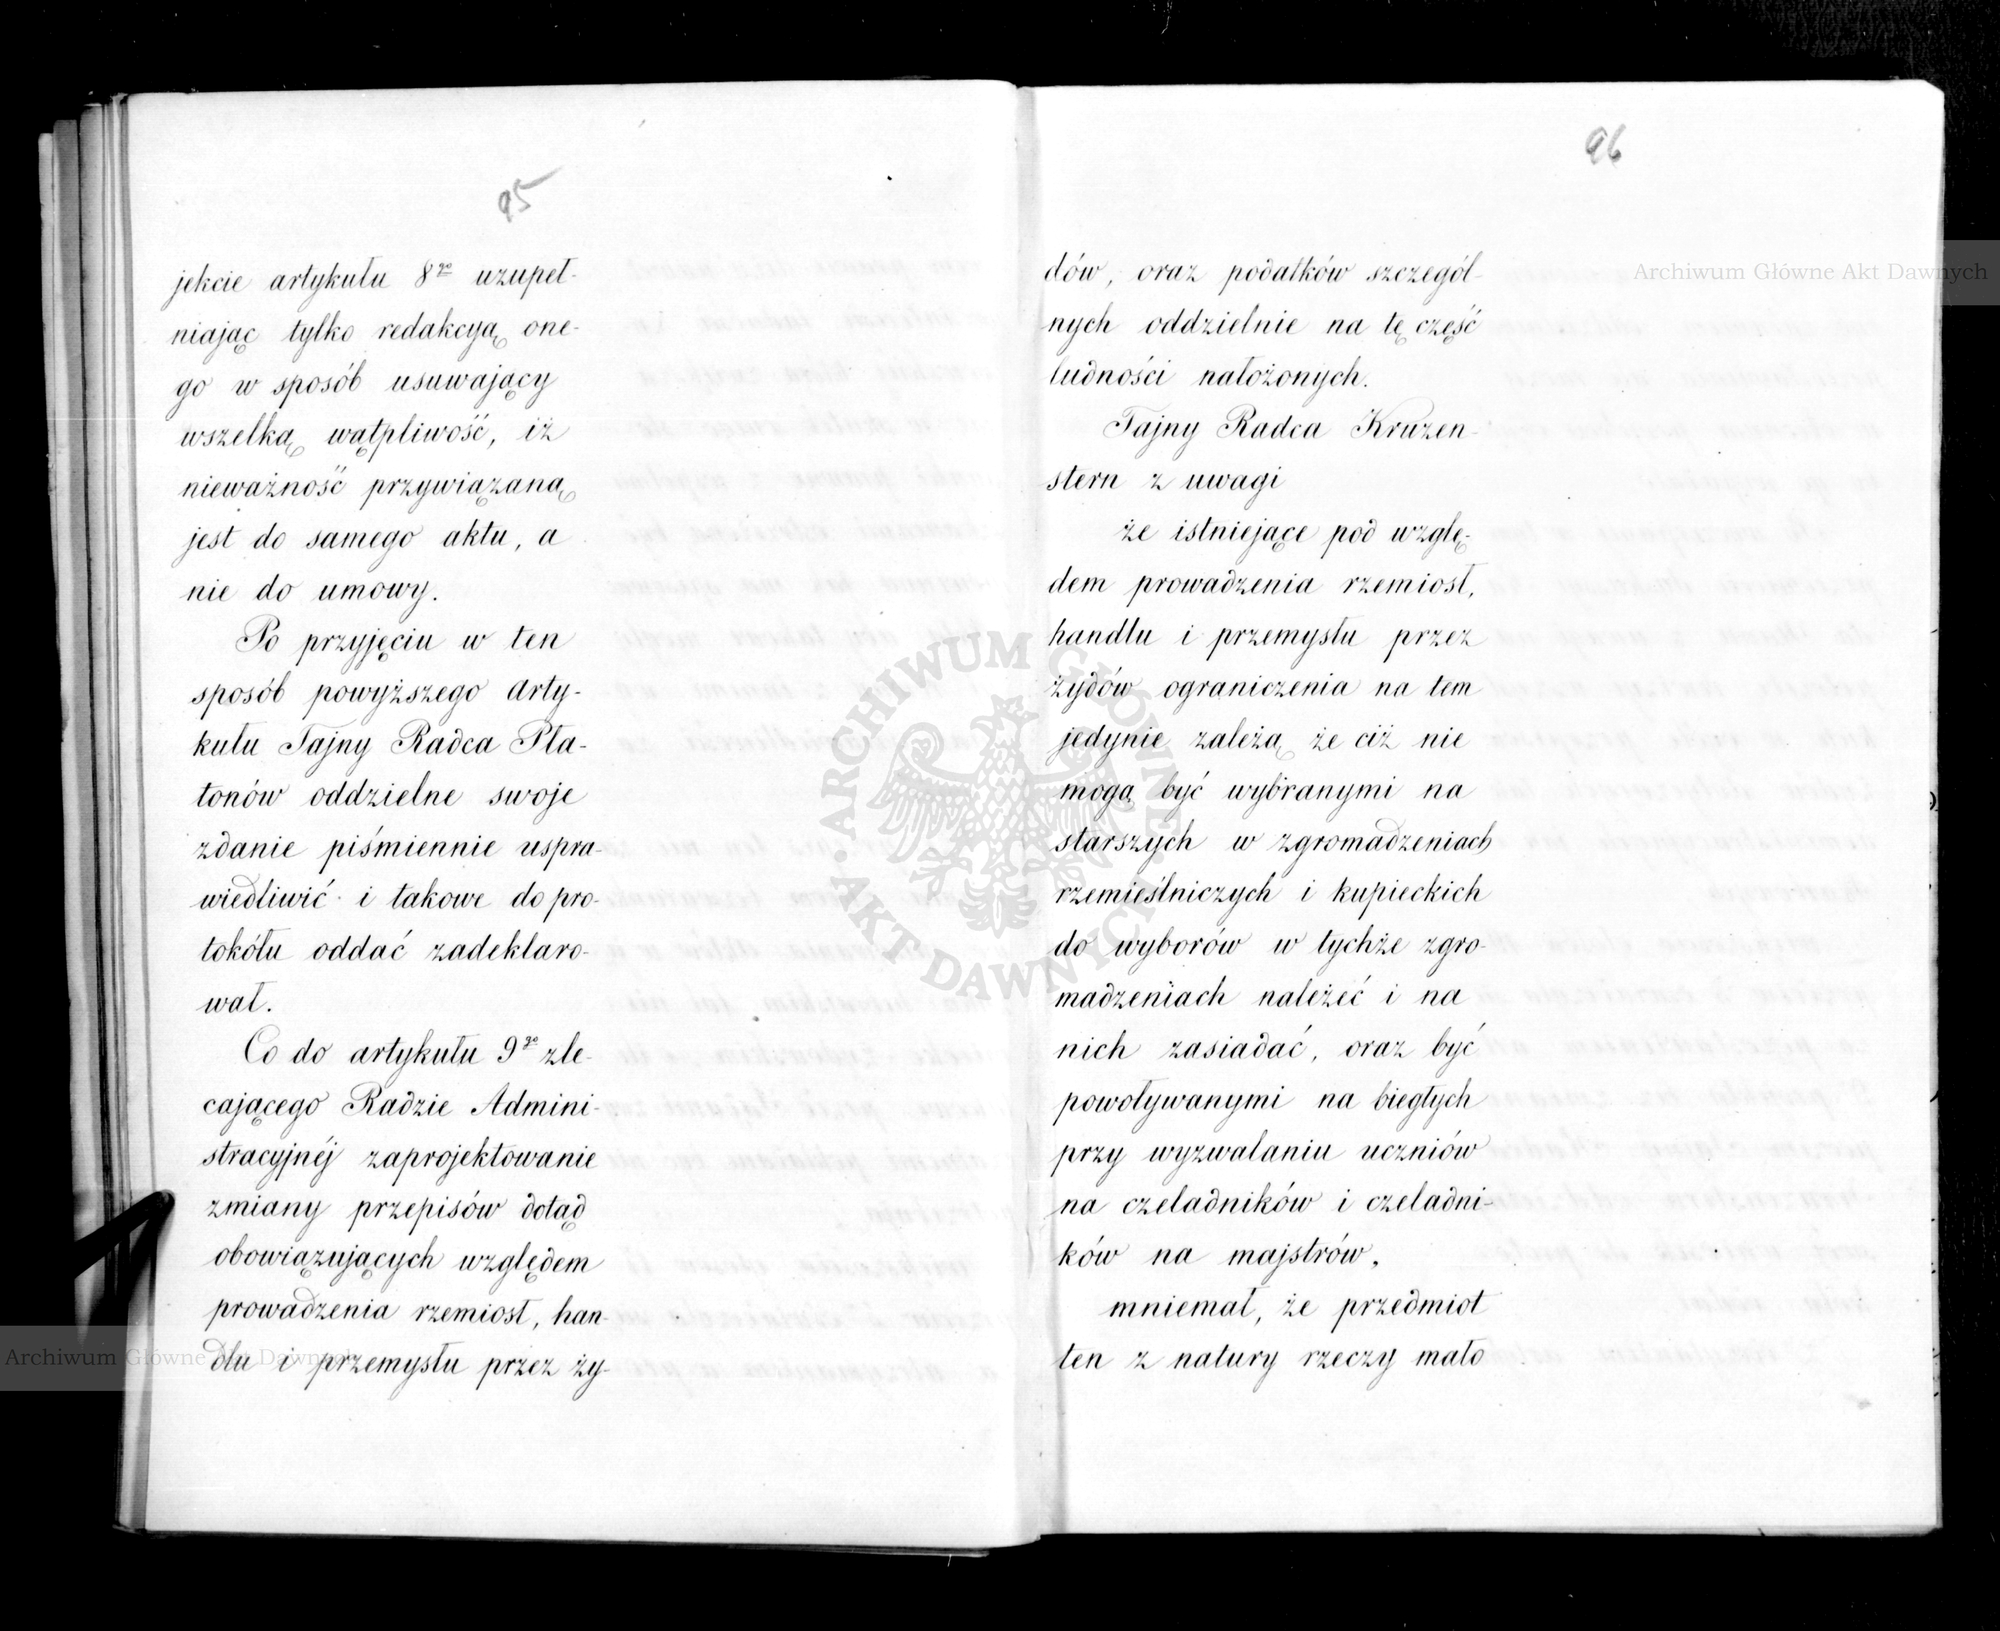 95
jekcie artykułu 8go uzupeł-
niając tylko redakcyą one-
go w sposób usuwający
wszelką wątpliwość, iż
nieważność przywiązaną
jest do samego aktu, a
nie do umowy.
Po przyjęciu w ten
sposób powyższego Arty-
kułu Tajny Radca Pła-
tonów oddzielne swoje
zdanie piśmiennie uspra-
wiedliwić i takowe do pro-
tokółu oddać zadeklaro-
wał.
Co do artykułu 9go zle-
cającego Radzie Admini-
stracyjnéj zaprojektowanie
zmiany przepisów dotąd
obowiązujących względem
prowadzenia rzemiosł, han-
dlu i przemysłu przez ży-
96
dów, oraz podatków szczegól-
nych oddzielnie na tę część
ludności nałożonych.
Tajny Radca Kruzen-
stern z uwagi
że istniejące pod wzglę-
dem prowadzenia rzemiosł,
handlu i przemysłu przez
żydów ograniczenia na tem
jedynie zależą że ciż nie
mogą być wybranymi na
starszych w zgromadzeniach
rzemieślniczych i kupieckich
do wyborów w tychże zgro-
madzeniach należeć i na
nich zasiadać, oraz być
powoływanymi na biegłych
przy wyzwalaniu uczniów
na czeladników i czeladni-
ków na majstrów,
mniemał, że przedmiot
ten z natury rzeczy mało
Archiwum Główne Akt Dawnych
Archiwum Główne Akt Dawnych
ARCHIWUM GŁÓWNE AKT DAWNYCH